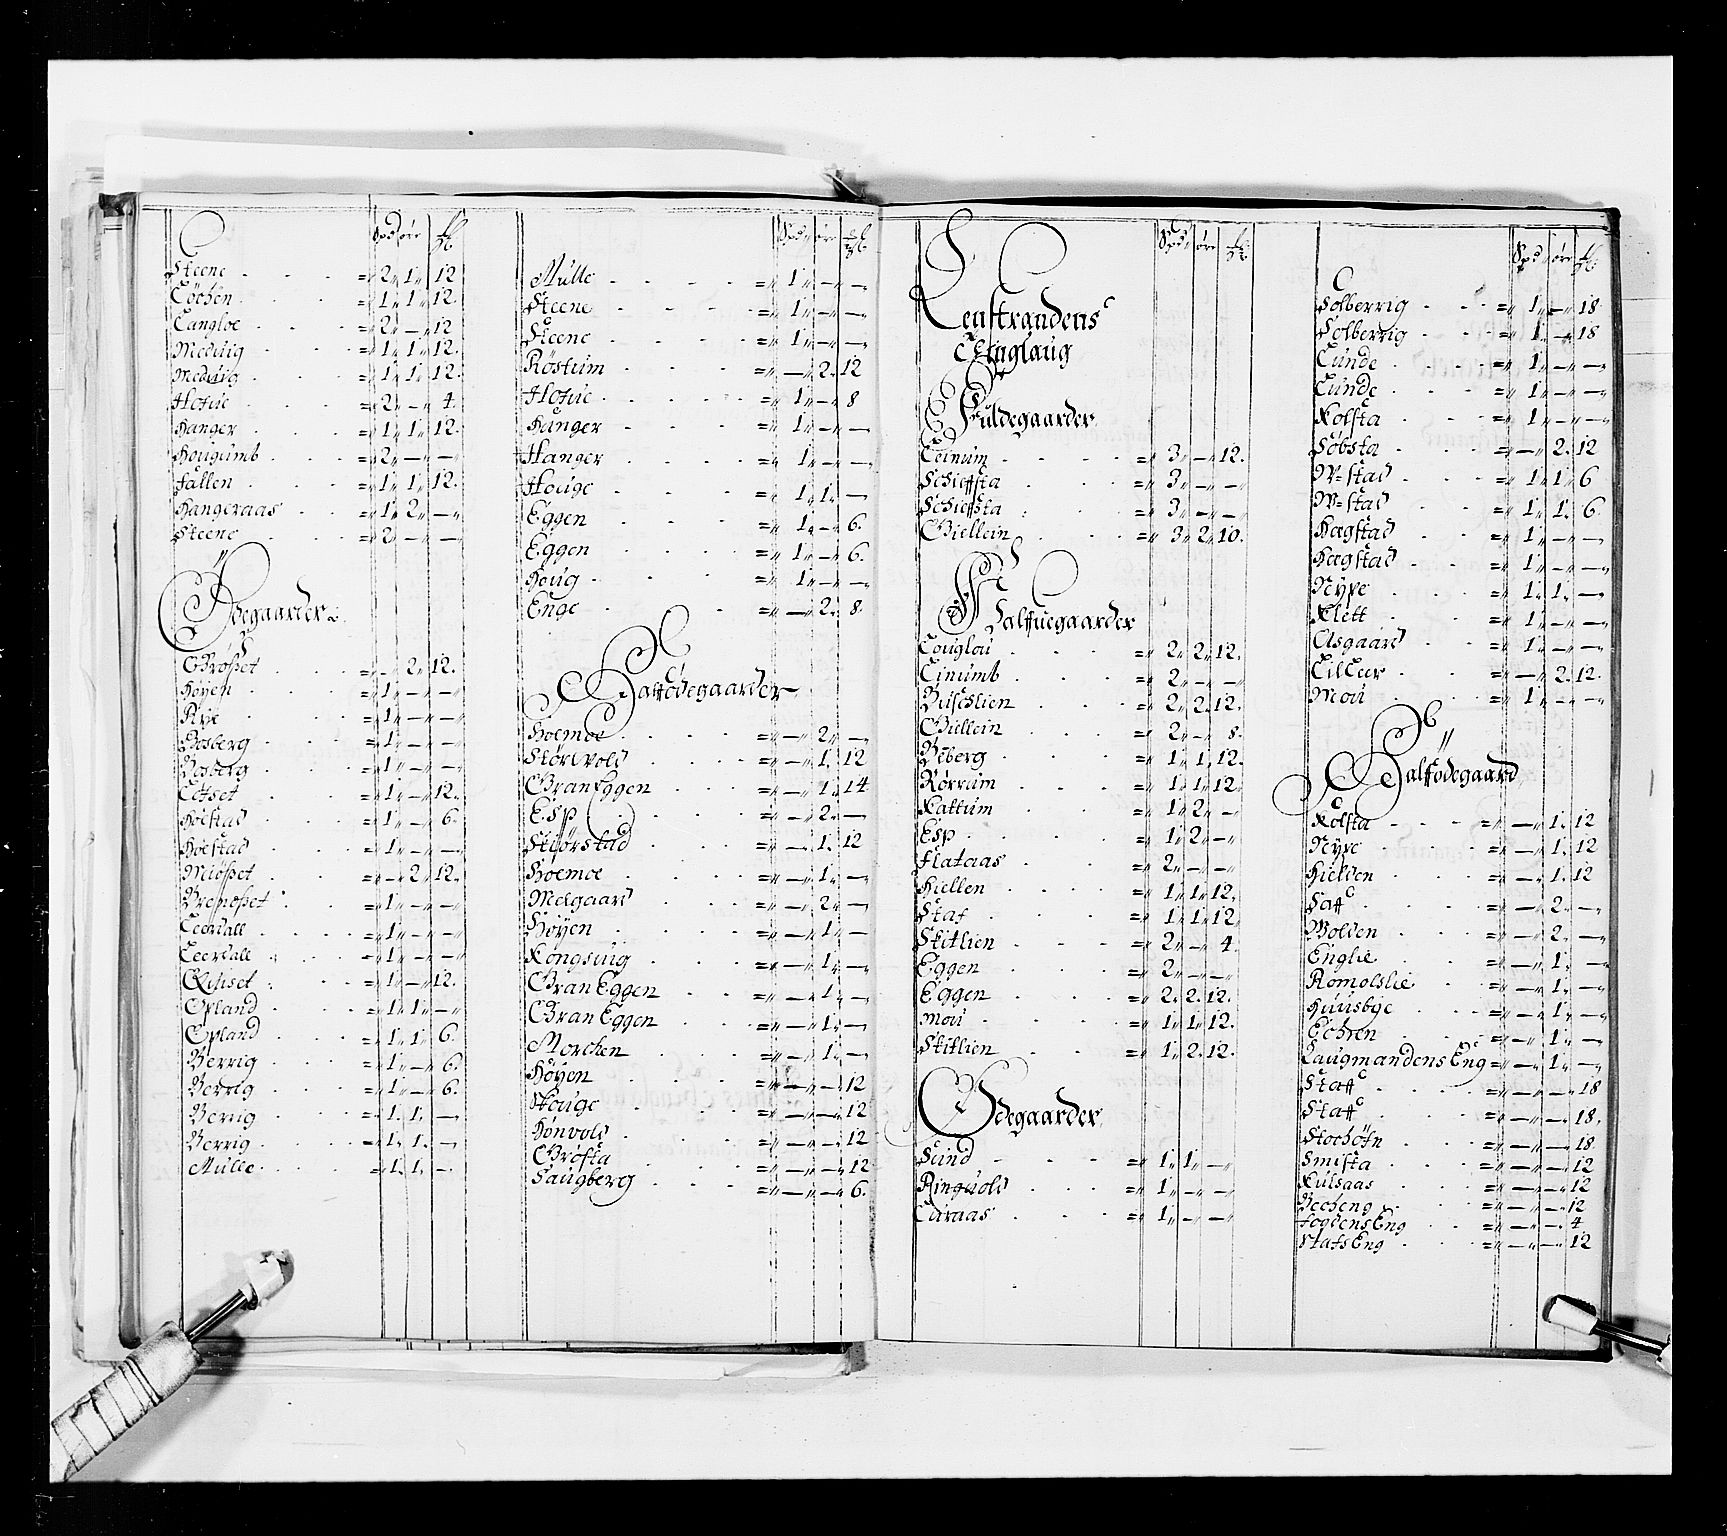 Spd øre
Steene = 2 1 12
Löchen = 1 1 12
Langloe = 2 — 12
Meduig = 1 1 12
Meduig = 1 1 12
Hofue = 2 — 4
Hanger = 1 1 12
Hougumb = 2 — —
Fallen = 1 1 12
Hangeraas = 1 2 —
Steene = 2 — —
Ødegaarder
Großet = — 2 12
Høyen = 1 — —
Rye = 1 — —
Bosberg = 1 — —
Bosberg = 1 — —
Lotset = 1 — 12
Holstad = 1 — 6
Holstad = 1 — —
Miößet = — 2 12
Breneßet = 1 — —
Leerdall = 1 — —
Leerdall = 1 — —
Quiset = 1 — 12
Opland = 1 1 —
Opland = 1 1 6
Berrig = 1 — 6
Berrig = 1 — 6
Berrig = 1 1 —
Berrig = 1 1 —
Mulle = 1 1 —
Spd øre
Mulle = 1 — —
Steene = 1 — —
Steene = 1 — —
Röstum = — 2 12
Hofue = 1 — 8
Hanger = 1 — —
Hanger = 1 — —
Houge = 1 1 —
Eggen = 1 — 6
Eggen = 1 — 6
Houg = 1 — —
Enge = — 2 8
Halfödegaarder
Holmoe = — 2 —
Störlvold = — 1 12
GranEggen = — 1 14
Esp = — 2 —
Skiörstad = — 1 12
Holmoe = — 1 —
Melgaard = — 2 —
Høyen = — 1 —
Kongsuig = — 1 —
GranEggen = — 1 —
GranEggen = — 1 —
Morchen = — 1 —
Høyen = — — 12
Skouge = — — 12
Hönvold = — — 12
Grösta = — — 12
Saugberg = — — 6
Spd øre
Lenstrandens
Tinglaug
Fuldegaarder
Leinum = 3 — 12
Schieffsta = 3 — —
Schieffsta = 3 — —
Giellein = 3 2 10
Halffuegaarder
Louglau = 2 2 12
Linumb = 2 — —
Buschlien = 2 2 12
Giellein = 2 — 8
Beberg = 1 1 12
Rørrum = 1 1 12
Kattum = 1 2 —
Esp = 1 2 —
Flataas = 2 — —
Hiellen = 1 1 12
Staf = 1 1 12
Skitlien = 2 — 4
Eggen = 2 — —
Eggen = 2 2 12
Mou = 1 1 12
Skitlien = 1 2 12
Ødegaarder
Seind = 1 1 —
Ringuold = 1 — —
Luraas = 1 — —
Spd øre
Solberrig = 1 — 18
Solberrig = 1 — 18
Lunde = 1 — —
Lunde = 1 — —
Kolsta = 1 — —
Søbsta = — 2 12
W=stad = 1 1 6
W=stad = 1 1 6
Hegstad = 1 — —
Hegstad = 1 — —
Nype = 1 1 —
Klett = 1 — —
Asgaard = 1 — —
Lilleer = — 2 12
Mou = 1 — —
Halfödegaard
Kolsta = — 1 12
Nype = — 1 12
Hielden = — 1 12
Saff = — 2 —
Wolden = — 2 —
Englie = — 1 —
Romolslie = — 1 —
Huusbye = — 1 —
Lehren = — 1 —
LaugmandensEng = — 1 —
Staff = — — 18
Staff = — — 18
Stochöfn = — — 18
Smista = — — 12
Kulsaas = — — 12
Becheng = — — 12
FogdensEng = — — 4
StafsEng = — — 12